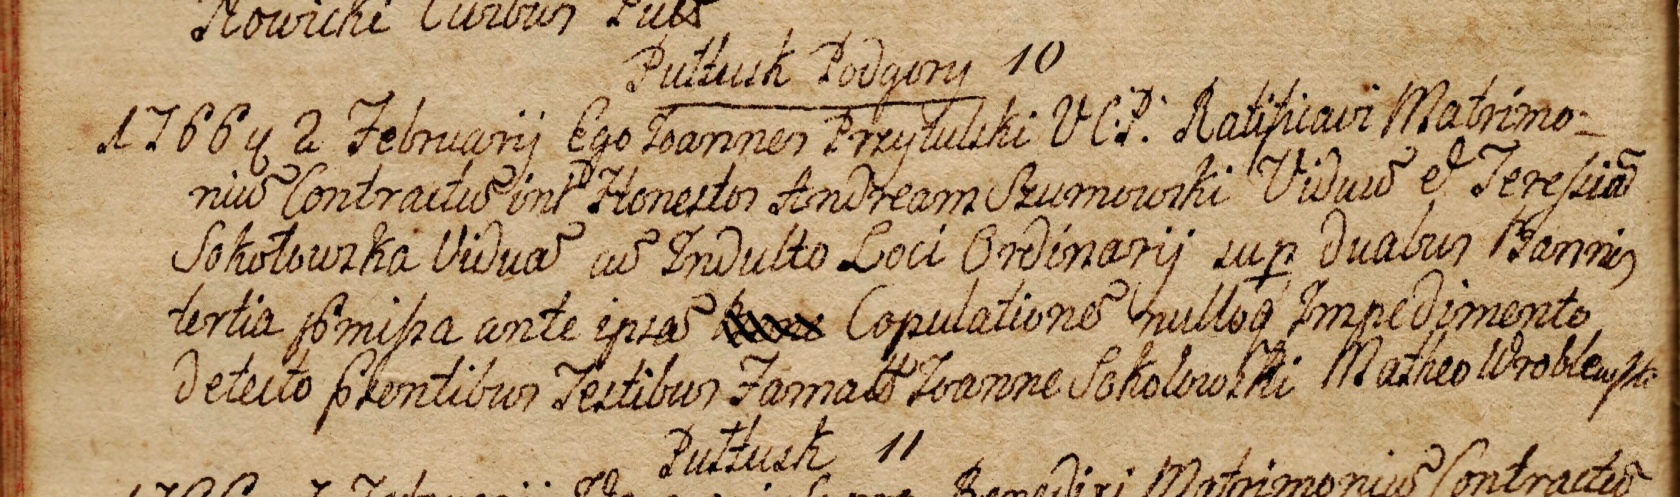 Nowicki Civibus Pultō
Pułtusk Podgory 10
1766 q̨ 2 Februarij Ego Joannes Przytulski V C: P: Ratificavi Matrimo-
niū Contractū int Honestos Andream Szumowski Viduū et Teresiā
Sokołowska Viduā cū Indulto Loci Ordinarij sup duabus Bannis
tertia p̄missa ante ipsā Copulationē nulloq Impedimento
detecto p̄sentibus Testibus Famatō Joanne Sokołowski Matheo Wroblewski
Pułtusk 11
Matrimoniū Contractū